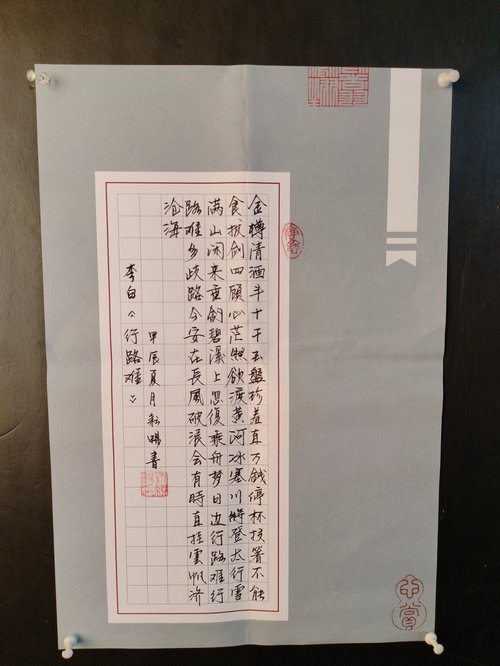 金樽清酒斗十千玉盤珍羞直万錢停杯投箸不能
食拔剑四顾心茫然欲渡黄河冰塞川將登太行雪
满山闲来垂釣碧溪上忽復乘舟梦日边行路难行
路难多歧路今安在長風破浪会有時直挂雲帆济
沧海
李白《行路难》
甲辰夏月書